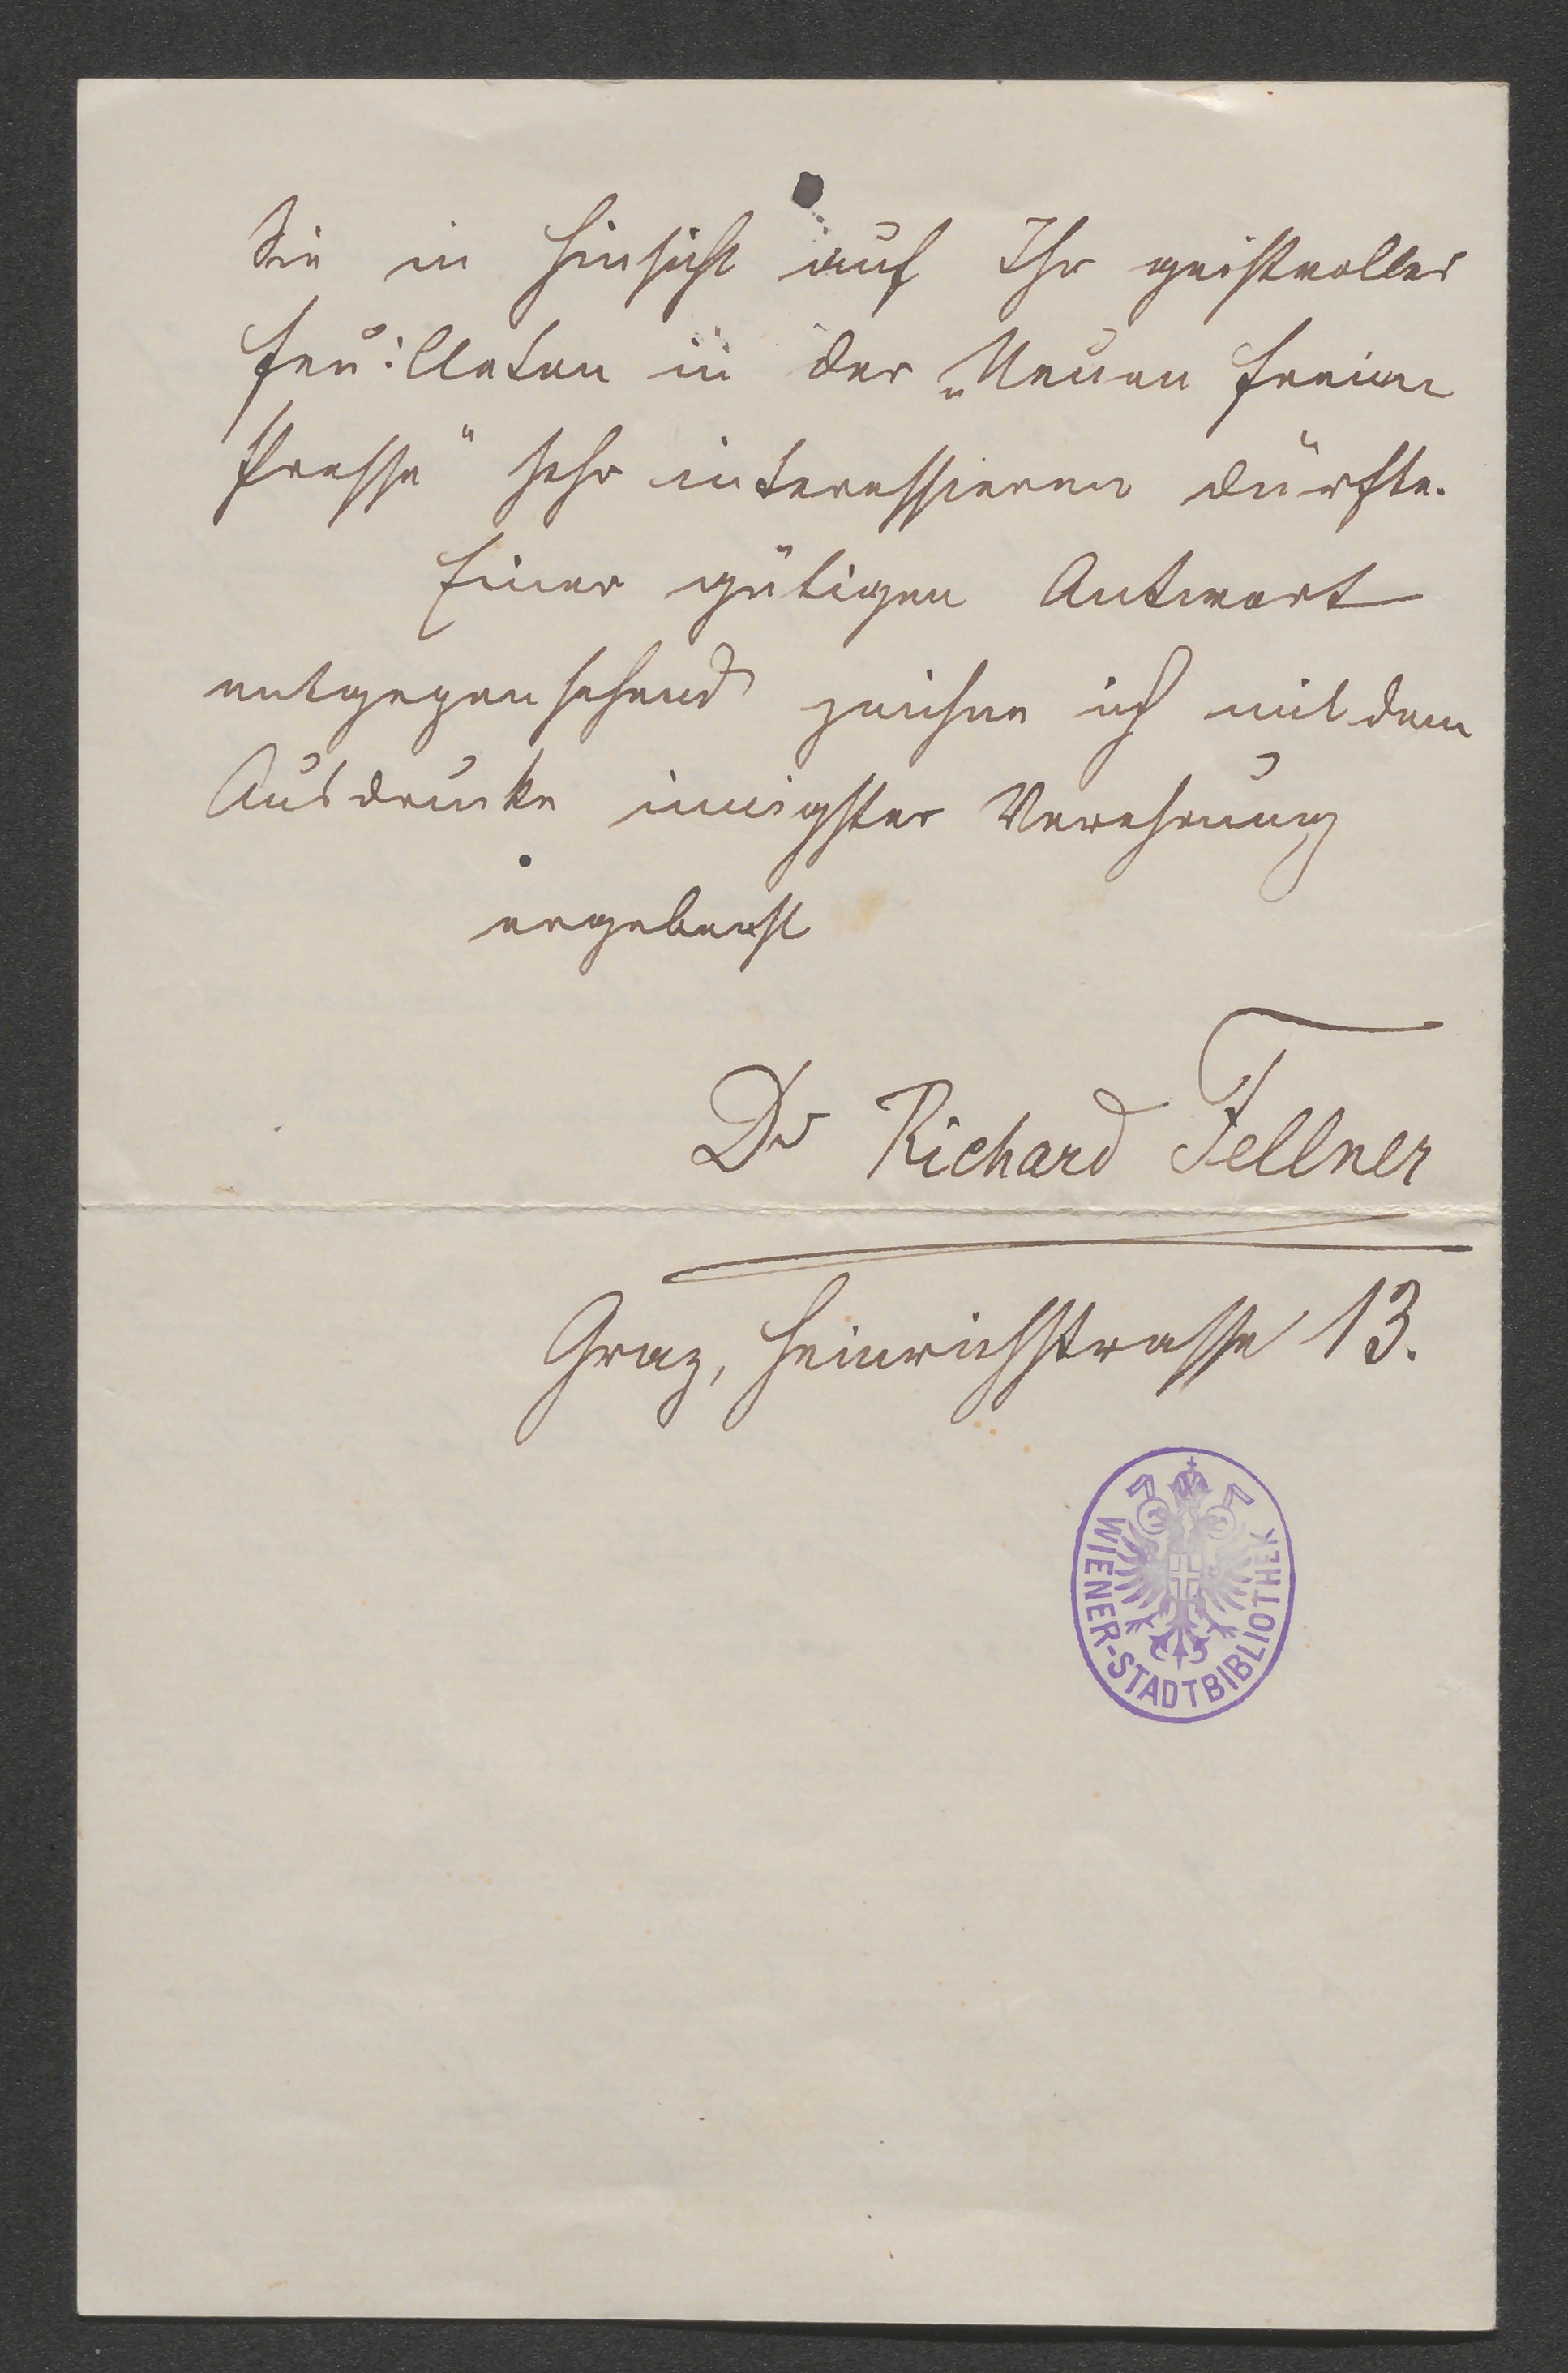 Sie in Hinsicht auf Ihr geistvolles
Feuilleton in der „Neuen Freien
Presse" sehr interessieren dürfte.
Einer gütigen Antwort
entgegensehend zeichne ich mit dem
Ausdrucke innigster Verehrung
ergebenst
Dr Richard Fellner
Graz, Heinrichstrasse 13.
WIENER-STADTBIBLIOTHEK